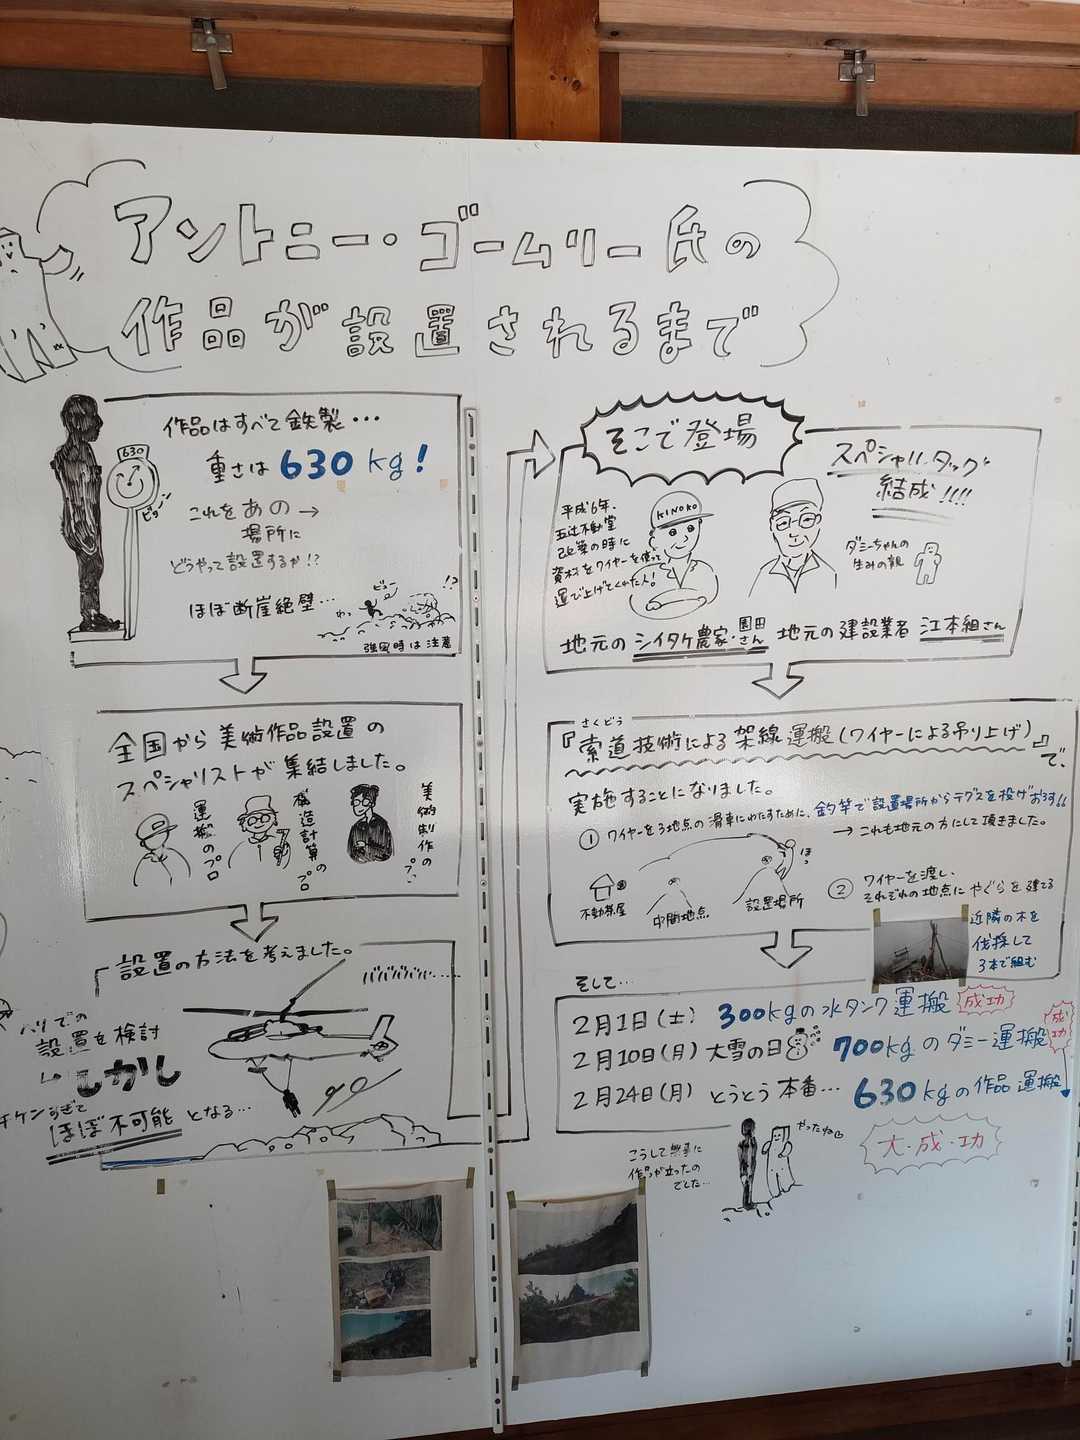 アントニー・ゴームリー氏の
作品が設置されるまで
作品はすべて鉄製…
重さは630kg!
630
ビョーン
これをあの→
場所に
どうやって設置するか!?
ほぼ断崖絶壁…
ビュー
!?
わっ
強風時は注意
全国から美術作品設置の
スペシャリストが集結しました。
運搬のプロ
構造計算のプロ
美術制作のプロ
設置の方法を考えました。
ババババ……
ヘリでの
設置を検討
しかし
チケンすぎて
ほぼ不可能となる…
そこで登場
スペシャルタッグ
結成!!!!
平成6年、
五辻不動堂
改築の時に
資材をワイヤーを使って
運び上げてくれた人!
KINOKO
ダミーちゃんの
生みの親
地元のシイタケ農家・園田さん
地元の建設業者 江本組さん
さくどう
『索道技術による架線運搬(ワイヤーによる吊り上げ)』で、
実施することになりました。
① ワイヤーを3地点の滑車にわたすために、釣竿で設置場所からテグスを投げおろす!!
→これも地元の方にして頂きました。
ほっ
不動茶屋
中間地点
設置場所
② ワイヤーを渡し、
それぞれの地点にやぐらを建てる
近隣の木を
伐採して
3本で組む
そして…
2月1日(土) 300kgの水タンク運搬 成功
2月10日(月) 大雪の日 700kgのダミー運搬 成功
2月24日(月) とうとう本番… 630kgの作品運搬
大・成・功
こうして無事に
作品が立ったの
でした…
やったね